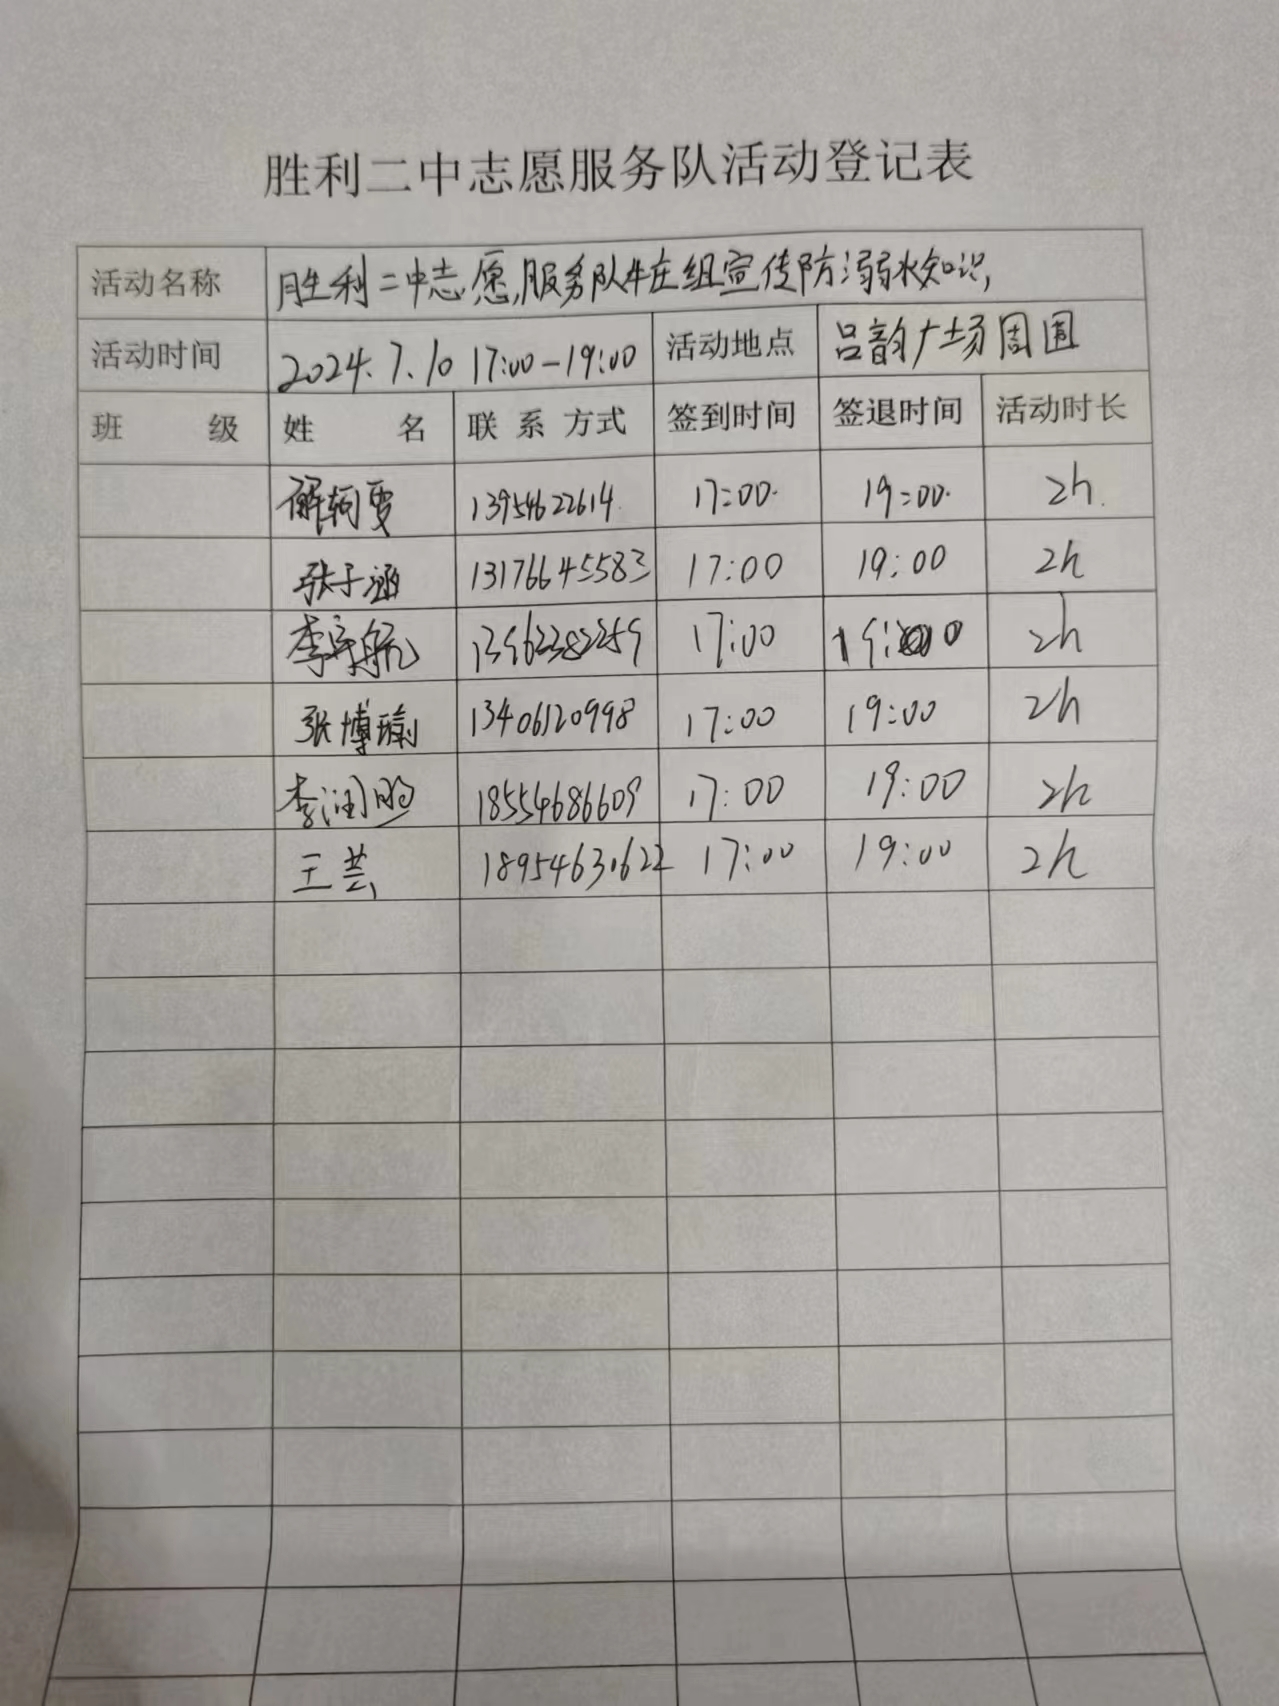 胜利二中志愿服务队活动登记表
活动名称 胜利二中志愿服务队牛庄组宣传防溺水知识,
活动时间 2024.7.10 17:00-19:00 活动地点 吕韵广场周围
班 级 姓 名 联 系 方式 签到时间 签退时间 活动时长
解轲雯 13954622614 17:00 19:00 2h
张子涵 13176645583 17:00 19:00 2h
李宇航 17:00 19:00 2h
张博瑜 13406120998 17:00 19:00 2h
李润 18554686609 17:00 19:00 2h
王芸 18954630622 17:00 19:00 2h